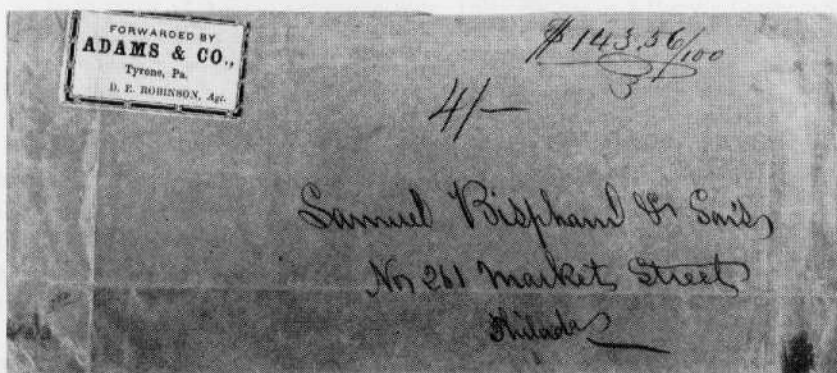 FORWARDED BY
ADAMS & CO.,
Tyrone, Pa.
D. E. ROBINSON, Agt.
$143.56/100
3
4/—
Samuel Bispham & Sons
No 261 Market Street
Philada